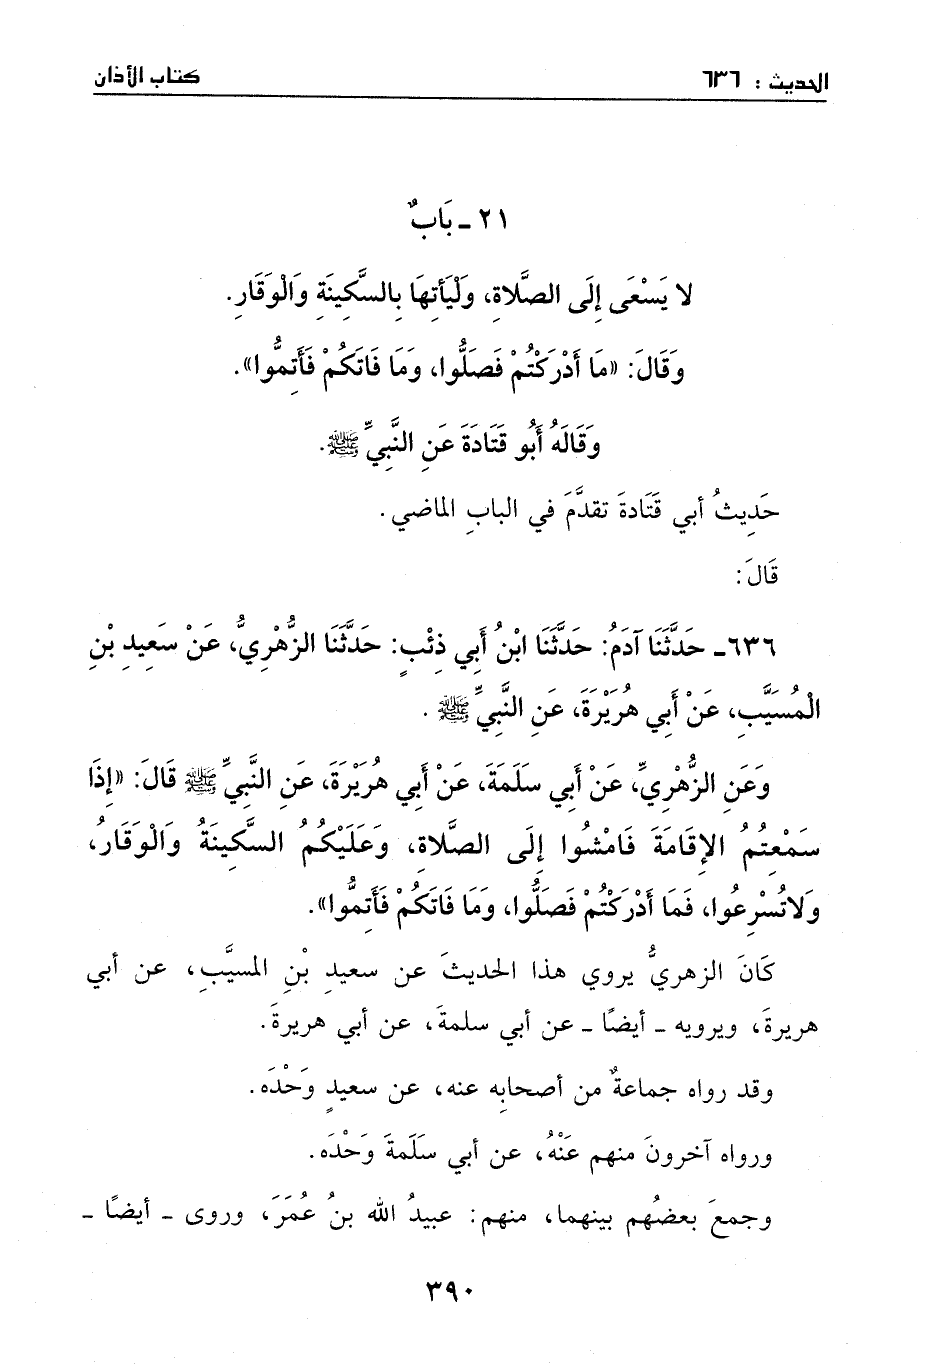 الحديث : ٦٣٦
كتاب الأذان
٢١ ـ بَابٌ
لا يَسْعَى إِلَى الصَّلاةِ، وَلْيَأتِهَا بِالسَّكِينَةِ وَالْوَقَارِ.
وَقَالَ: «مَا أَدْرَكْتُمْ فَصَلُّوا، وَمَا فَاتَكُمْ فَأَتِمُّوا».
وَقَالَهُ أَبُو قَتَادَةَ عَنِ النَّبِيِّ ﷺ.
حَدِيثُ أبي قَتَادةَ تقدَّمَ في البابِ الماضي.
قَالَ:
٦٣٦ـ حَدَّثَنَا آدَمُ: حَدَّثَنَا ابْنُ أَبِي ذِئْبٍ: حَدَّثَنَا الزُّهْرِيُّ، عَنْ سَعِيدِ بْنِ
الْمُسَيَّبِ، عَنْ أَبِي هُرَيْرَةَ، عَنِ النَّبِيِّ ﷺ .
وَعَنِ الزُّهْرِيِّ، عَنْ أَبِي سَلَمَةَ، عَنْ أَبِي هُرَيْرَةَ، عَنِ النَّبِيِّ ﷺ قَالَ: «إِذَا
سَمْعتُمُ الإقَامَةَ فَامْشُوا إِلَى الصَّلاةِ، وَعَلَيْكُمُ السَّكِينَةُ وَالْوَقَارُ،
وَلاتُسْرِعُوا، فَمَا أَدْرَكْتُمْ فَصَلُّوا، وَمَا فَاتَكُمْ فَأَتِمُّوا».
كَانَ الزهريُّ يروي هذا الحديثَ عن سعيدِ بْنِ المسيَّبِ، عن أبي
هريرةَ، ويرويه ـ أيضًا ـ عن أبي سلمةَ، عن أبي هريرةَ.
وقد رواه جماعةٌ من أصحابِه عنه، عن سعيدٍ وَحْدَه.
ورواه آخرونَ منهم عَنْهُ، عن أبي سَلَمةَ وَحْدَه.
وجمعَ بعضُهم بينهما، منهم: عبيدُ الله بنُ عُمَرَ، وروى ـ أيضًا ـ
٣٩٠